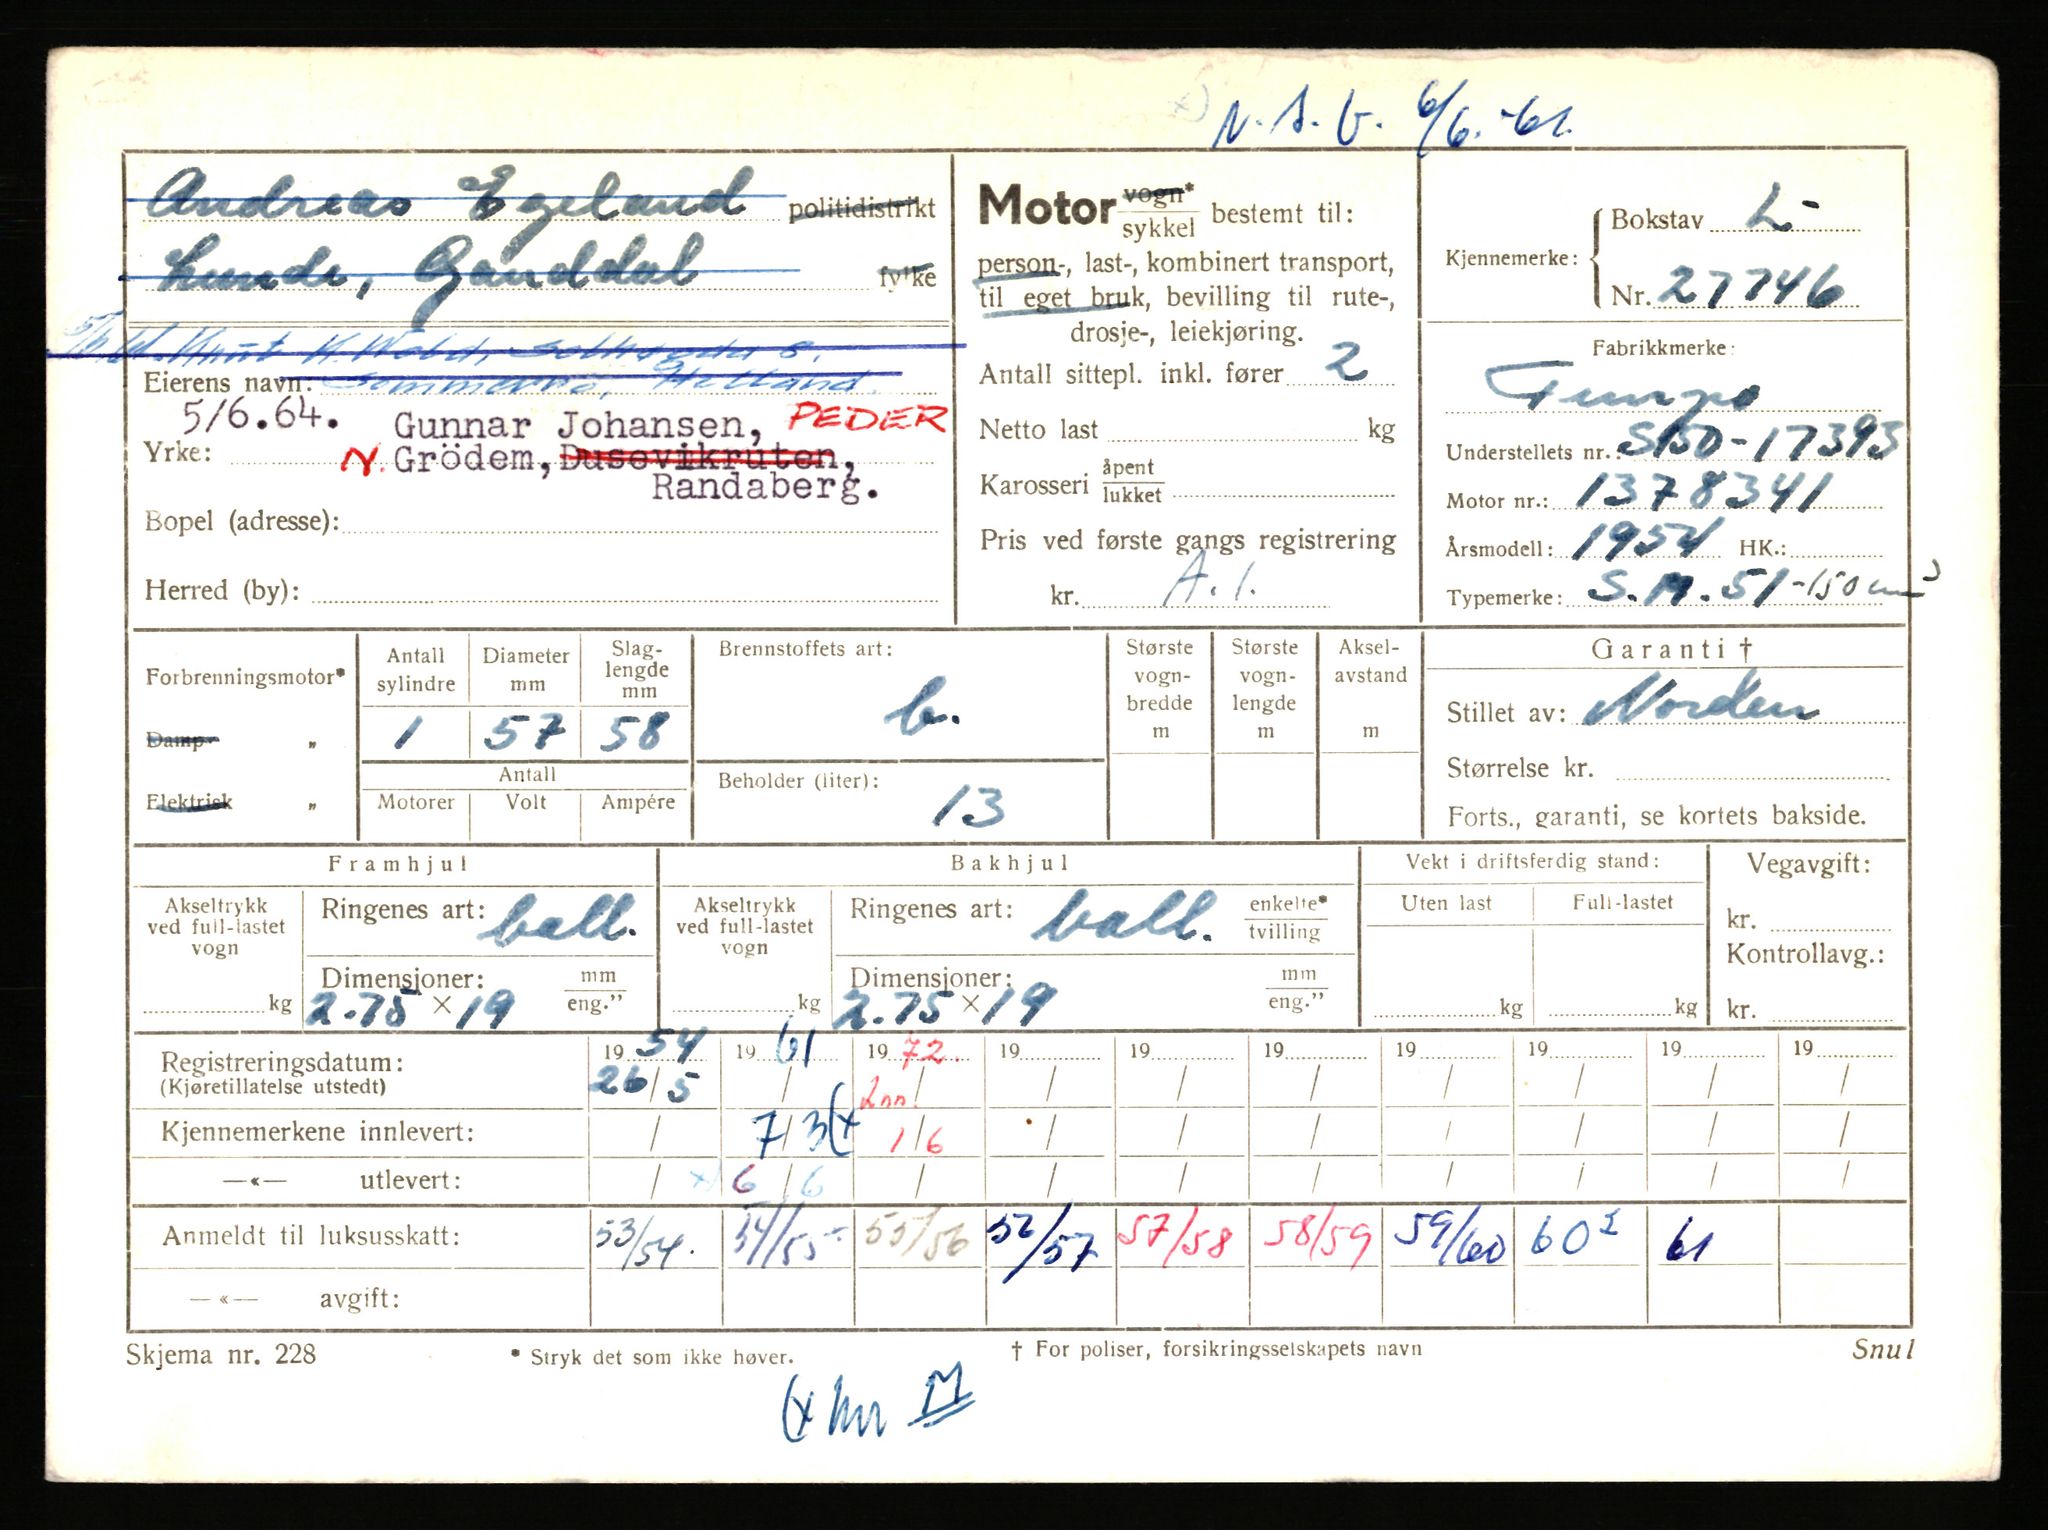 N.A.G. 6/6.-61.
Andreas Egeland politidistrikt
Lunde, Ganddal fylke
Knut K. Wold,
Eierens navn: Sommerro, Hetland.
5/6.64. Gunnar Johansen, PEDER
Yrke: N. Grödem, Dusevikruten,
Randaberg.
Bopel (adresse):
Herred (by):
Motor vogn* sykkel bestemt til:
person-, last-, kombinert transport,
til eget bruk, bevilling til rute-,
drosje-, leiekjøring.
Antall sittepl. inkl. fører 2
Netto last kg
Karosseri åpent lukket
Pris ved første gangs registrering
kr. A. 1.
Kjennemerke: Bokstav L-
Nr. 27746
Fabrikkmerke:
Tempo
Understellets nr.: S150-17393
Motor nr.: 1378341
Årsmodell: 1954 HK.:
Typemerke: S.M. 51-150 cm3
Forbrenningsmotor*
Damp- „
Elektrisk „
Antall sylindre 1
Diameter mm 57
Slag-lengde mm 58
Antall
Motorer Volt Ampére
Brennstoffets art:
b.
Beholder (liter):
13
Største vogn-bredde m
Største vogn-lengde m
Aksel-avstand m
Garanti †
Stillet av: Norden
Størrelse kr.
Forts., garanti, se kortets bakside.
Framhjul
Akseltrykk ved full-lastet vogn kg
Ringenes art: ball.
Dimensjoner: mm eng."
2.75 × 19
Bakhjul
Akseltrykk ved full-lastet vogn kg
Ringenes art: ball. enkelte* tvilling
Dimensjoner: mm eng."
2.75 × 19
Vekt i driftsferdig stand:
Uten last Full-lastet
kg kg
Vegavgift:
kr.
Kontrollavg.:
kr.
Registreringsdatum: 19 54 19 61 19 72. 19 19 19 19 19 19 19
(Kjøretillatelse utstedt) 26/5 / / / / / / / / /
Inn.
Kjennemerkene innlevert: / 7/3 (x 1/6 / / / / / / /
—«— utlevert: / x) 6/6 / / / / / / / /
Anmeldt til luksusskatt: 53/54. 54/55 55/56 52/57 57/58 58/59 59/60 60 2 61
—«— avgift:
Skjema nr. 228 * Stryk det som ikke høver. † For poliser, forsikringsselskapets navn Snul
(x